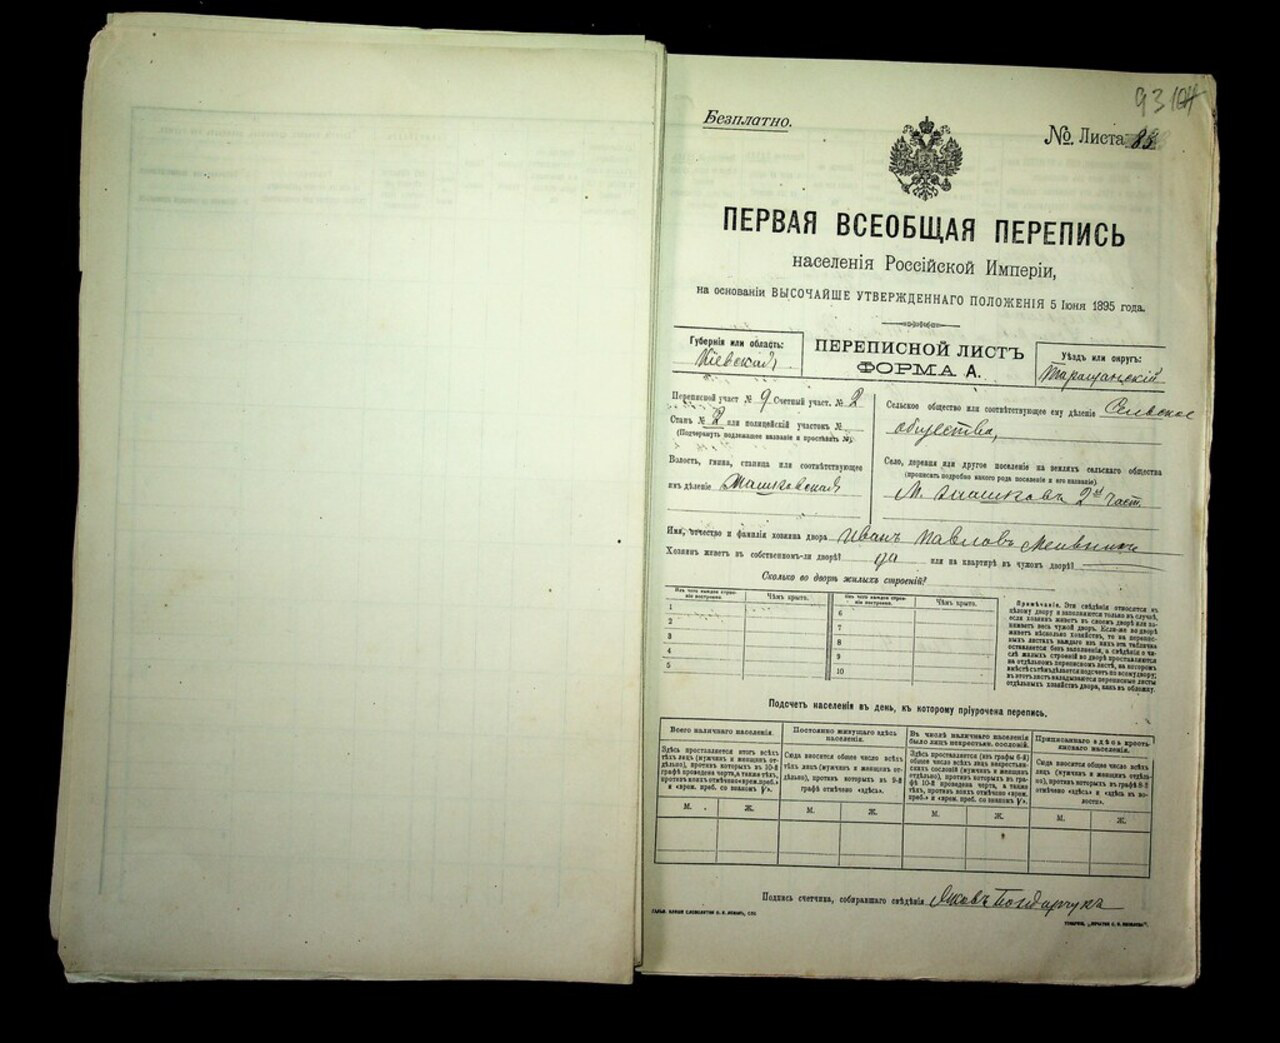 93
Безплатно.
№. Листа 83
ПЕРВАЯ ВСЕОБЩАЯ ПЕРЕПИСЬ
населенія Россійской Имперіи,
на основаніи ВЫСОЧАЙШЕ УТВЕРЖДЕННАГО ПОЛОЖЕНІЯ 5 Іюня 1895 года.
Губернія или область:
Кіевская
ПЕРЕПИСНОЙ ЛИСТЪ
ФОРМА А.
Уѣздъ или округъ:
Таращанскій
Переписной участ. № 9 Счетный участ. № 2
Станъ № 2 или полицейскій участокъ №
(Подчеркнуть подлежащее названіе и проставить №)
Волость, гмина, станица или соотвѣтствующее
имъ дѣленіе
Сельское общество или соотвѣтствующее ему дѣленіе Сельское
общество,
Село, деревня или другое поселеніе на земляхъ сельскаго общества
(прописать подробно какого рода поселеніе и его названіе).
2й част.
Имя, отчество и фамилія хозяина двора Иванъ Павловъ
Хозяинъ живетъ въ собственномъ-ли дворѣ? да или на квартирѣ въ чужомъ дворѣ?
Сколько во дворѣ жилыхъ строеній?
Изъ чего каждое строе-
ніе построено.
Чѣмъ крыто.
Изъ чего каждое строе-
ніе построено.
Чѣмъ крыто.
1
2
3
4
5
6
7
8
9
10
Примѣчаніе. Эти свѣдѣнія относятся къ
цѣлому двору и заполняются только въ случаѣ,
если хозяинъ живетъ въ своемъ дворѣ или за-
нимаетъ весь чужой дворъ. Если-же во дворѣ
живетъ нѣсколько хозяйствъ, то на перепис-
ныхъ листахъ каждаго изъ нихъ эта табличка
оставляется безъ заполненія, а свѣдѣнія о чи-
слѣ жилыхъ строеній во дворѣ проставляются
на отдѣльномъ переписномъ листѣ, на которомъ
вмѣстѣ съ тѣмъ дѣлается подсчетъ по всему двору;
въ этотъ листъ вкладываются переписные листы
отдѣльныхъ хозяйствъ двора, какъ въ обложку.
Подсчетъ населенія въ день, къ которому пріурочена перепись.
Всего наличнаго населенія.
Здѣсь проставляется итогъ всѣхъ
тѣхъ лицъ (мужчинъ и женщинъ от-
дѣльно), противъ которыхъ въ 10-й
графѣ проведена черта, а также тѣхъ,
противъ коихъ отмѣчено «врем. преб.»
и «врем. преб. со знакомъ V».
Постоянно живущаго здѣсь
населенія.
Сюда вносится общее число всѣхъ
тѣхъ лицъ (мужчинъ и женщинъ от-
дѣльно), противъ которыхъ въ 9-й
графѣ отмѣчено «здѣсь».
Въ числѣ наличнаго населенія
было лицъ некрестьян. сословій.
Здѣсь проставляется (изъ графы 6-й)
общее число всѣхъ лицъ некрестьян-
скихъ сословій (мужчинъ и женщинъ
отдѣльно), противъ которыхъ въ гра-
фѣ 10-й проведена черта, а также
тѣхъ, противъ коихъ отмѣчено «врем.
преб.» и «врем. преб. со знакомъ V».
Приписаннаго здѣсь кресть-
янскаго населенія.
Сюда вносится общее число всѣхъ
лицъ (мужчинъ и женщинъ отдѣль-
но), противъ которыхъ въ графѣ 8-й
отмѣчено «здѣсь» и «здѣсь въ во-
лости».
М. Ж. М. Ж. М. Ж. М. Ж.
Подпись счетчика, собиравшаго свѣдѣнія Яковъ Бондарчукъ